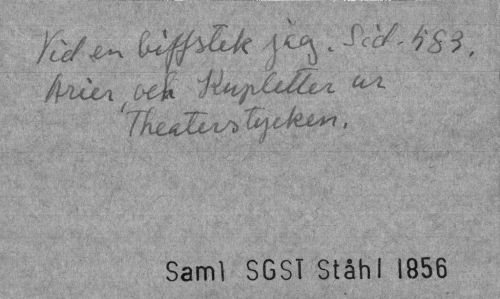 Vid en biffstek jag. Sid. 583.
Arier och Kupletter ur
Theaterstycken.
Saml SGST Ståhl 1856